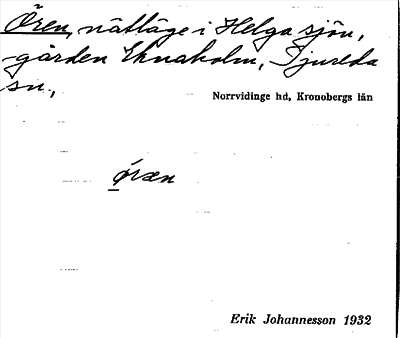 Ören, nätläge i Helga sjön,
gården Eknaholm, Tjureda
sn.,
Norrvidinge hd, Kronobergs län
öræn
Erik Johannesson 1932